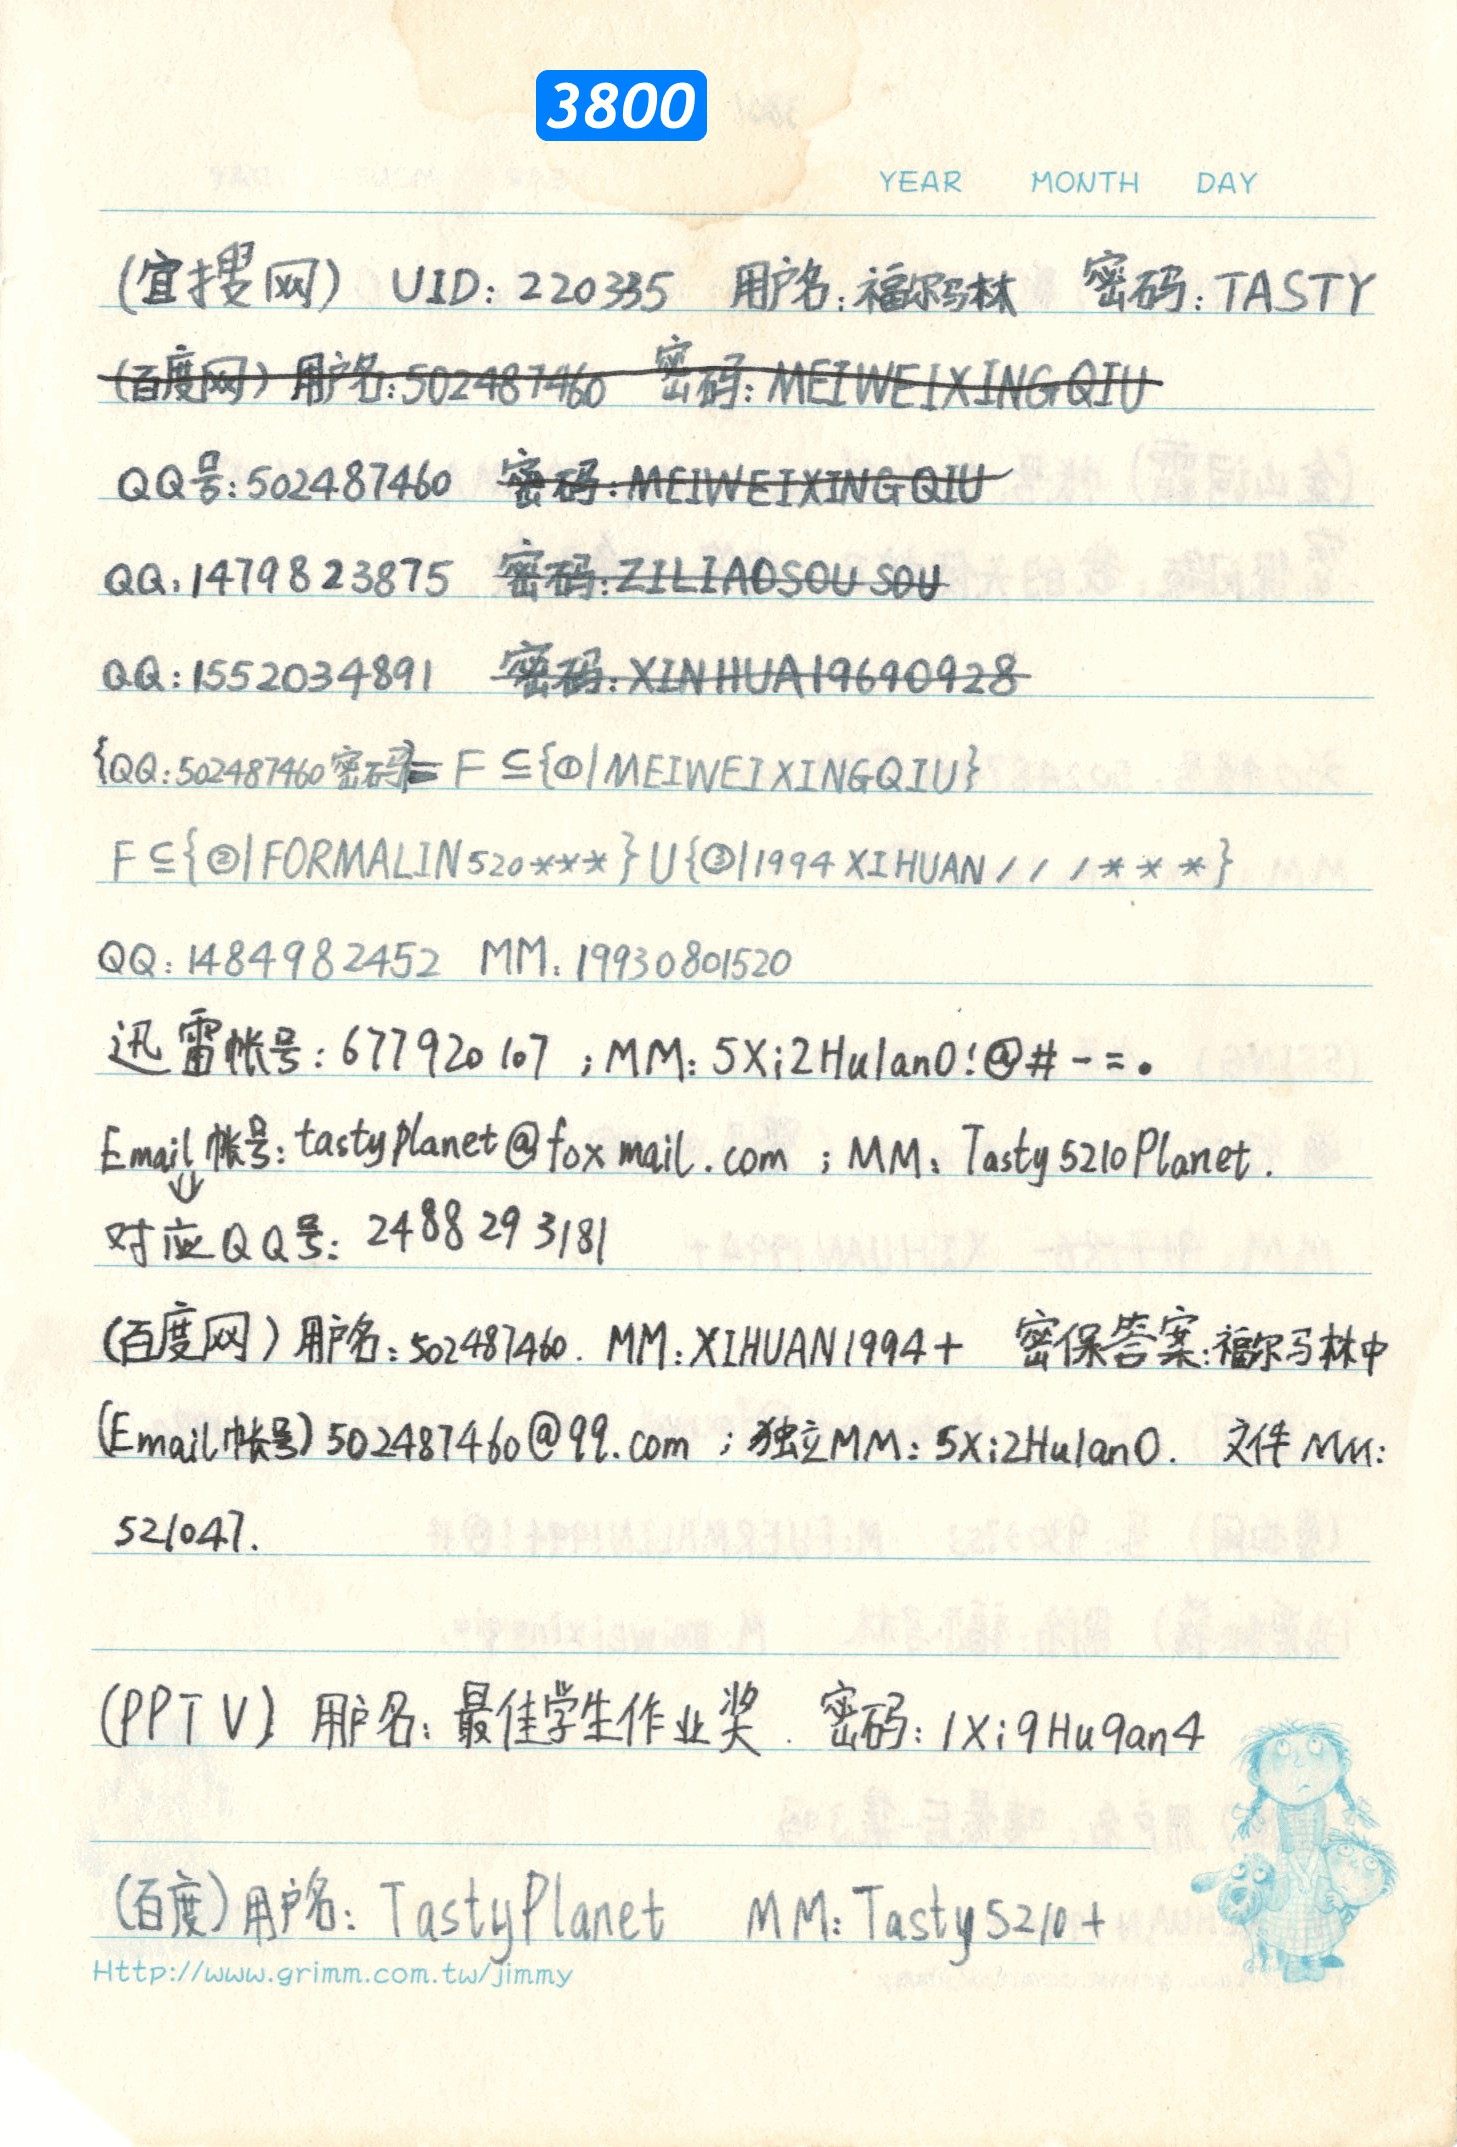 3800
YEAR MONTH DAY
(宜搜网) UID: 220335 用户名:福尔马林 密码:TASTY
(百度网) 用户名:502487460 密码:MEIWEIXINGQIU
QQ号:502487460 密码:MEIWEIXINGQIU
QQ:1479823875 密码:ZILIAOSOUSOU
QQ:1552034891 密码:XINHUA19690928
{QQ:502487460密码}= F ⊆{①|MEIWEIXINGQIU}
F ⊆{②|FORMALIN520***}U{③|1994XIHUAN///***}
QQ:1484982452 MM:19930801520
迅雷帐号:677920107 ;MM:5Xi2Hu1an0!@#-=.
Email帐号:tastyplanet@foxmail.com ;MM:Tasty5210Planet.
对应QQ号:2488293181
(百度网)用户名:502487460. MM:XIHUAN1994+ 密保答案:福尔马林中
(Email帐号)502487460@qq.com ;独立MM:5Xi2Hu1an0. 文件MM:
521047.
(PPTV) 用户名:最佳学生作业奖. 密码:1Xi9Hu9an4
(百度)用户名:TastyPlanet MM:Tasty5210+
Http://www.grimm.com.tw/jimmy